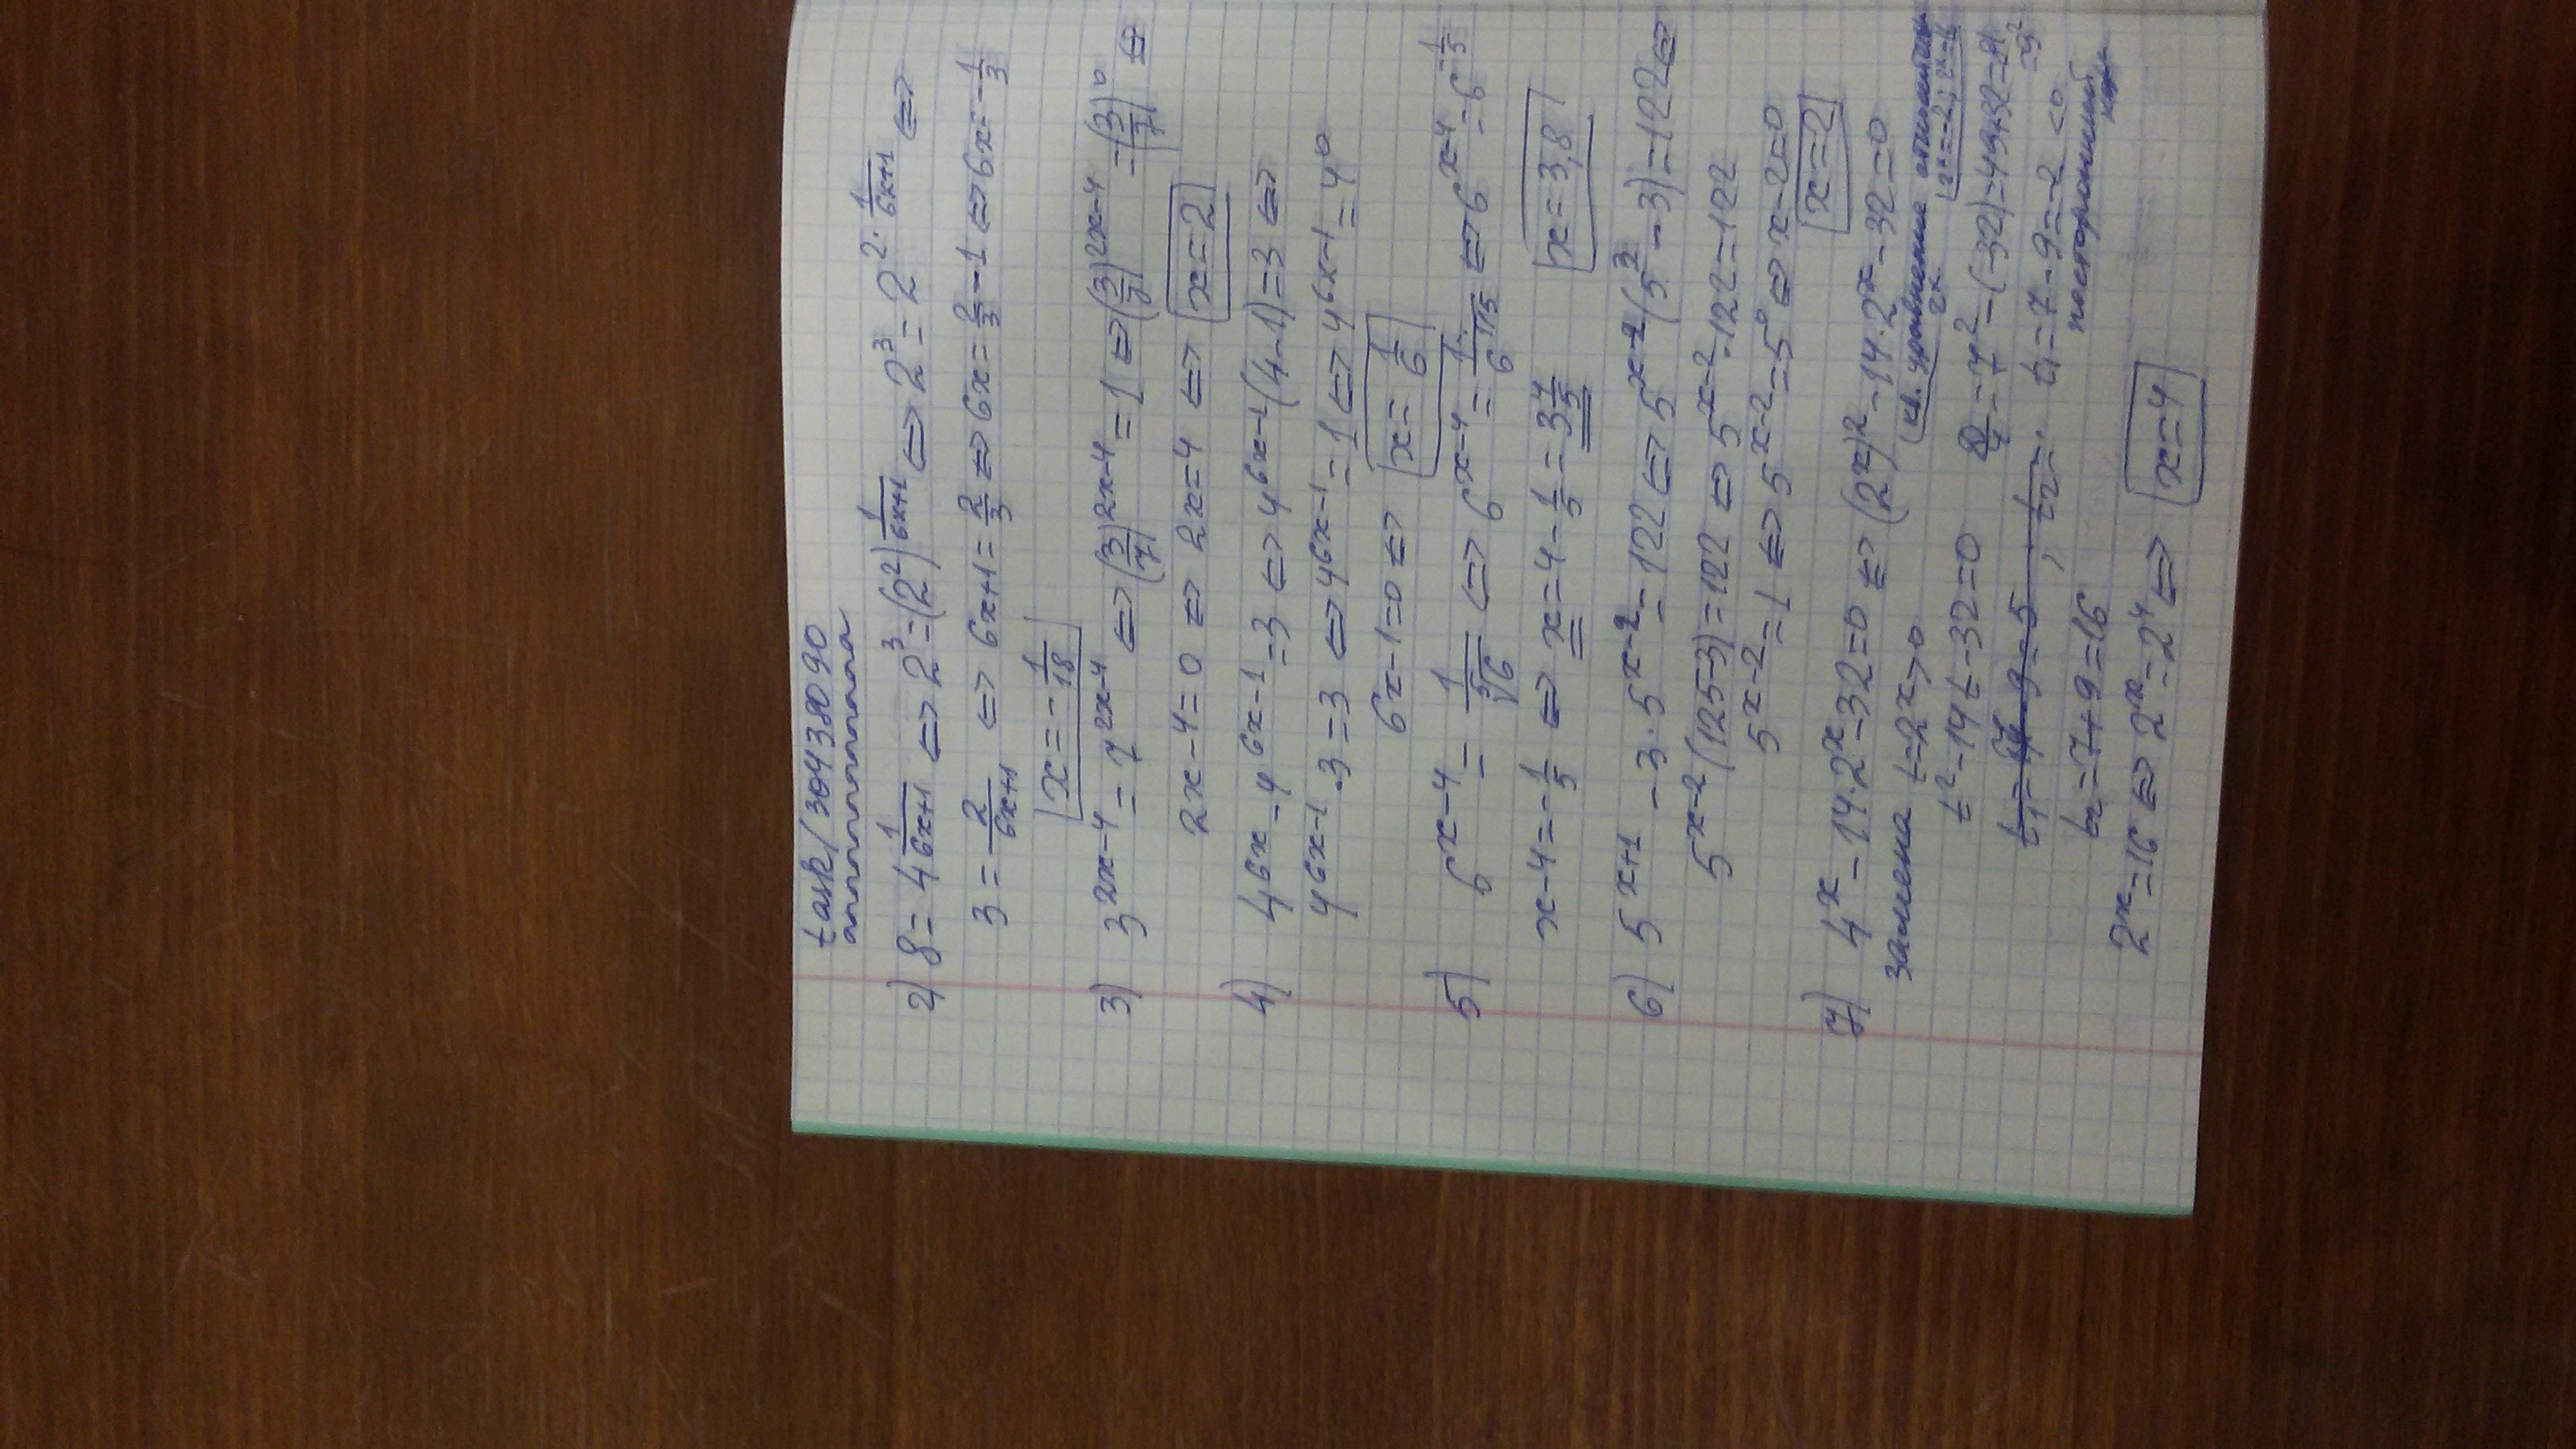 task/30438090
2) 8 = 4^(1/(6x+1)) ⇔ 2³ = (2²)^(1/(6x+1)) ⇔ 2³ = 2^(2·1/(6x+1)) ⇔
3 = 2/(6x+1) ⇔ 6x+1 = 2/3 ⇔ 6x = 2/3 − 1 ⇔ 6x = −1/3
x = −1/18
3) 3^(2x−4) = 7^(2x−4) ⇔ (3/7)^(2x−4) = 1 ⇔ (3/7)^(2x−4) = (3/7)⁰ ⇔
2x−4 = 0 ⇔ 2x = 4 ⇔ x = 2
4) 4^(6x) − 4^(6x−1) = 3 ⇔ 4^(6x−1)(4−1) = 3 ⇔
4^(6x−1)·3 = 3 ⇔ 4^(6x−1) = 1 ⇔ 4^(6x−1) = 4⁰
6x−1 = 0 ⇔ x = 1/6
5) 6^(x−4) = 1/⁵√6 ⇔ 6^(x−4) = 1/6^(1/5) ⇔ 6^(x−4) = 6^(−1/5)
x−4 = −1/5 ⇔ x = 4 − 1/5 = 3 4/5 x = 3,8
6) 5^(x+1) − 3·5^(x−2) = 122 ⇔ 5^(x−2)(5³ − 3) = 122 ⇔
5^(x−2)(125−3) = 122 ⇔ 5^(x−2)·122 = 122
5^(x−2) = 1 ⇔ 5^(x−2) = 5⁰ ⇔ x−2 = 0
x = 2
7) 4^x − 14·2^x − 32 = 0 ⇔ (2^x)² − 14·2^x − 32 = 0
замена t = 2^x > 0 кв. уравнение относительно 2^x
t² − 14t − 32 = 0 D/4 = 7² − (−32) = 49+32 = 81 = 9²
t₁ = 7 − 9 = −2 < 0
t₂ = 7 + 9 = 16 посторонний
2^x = 16 ⇔ 2^x = 2⁴ ⇔ x = 4